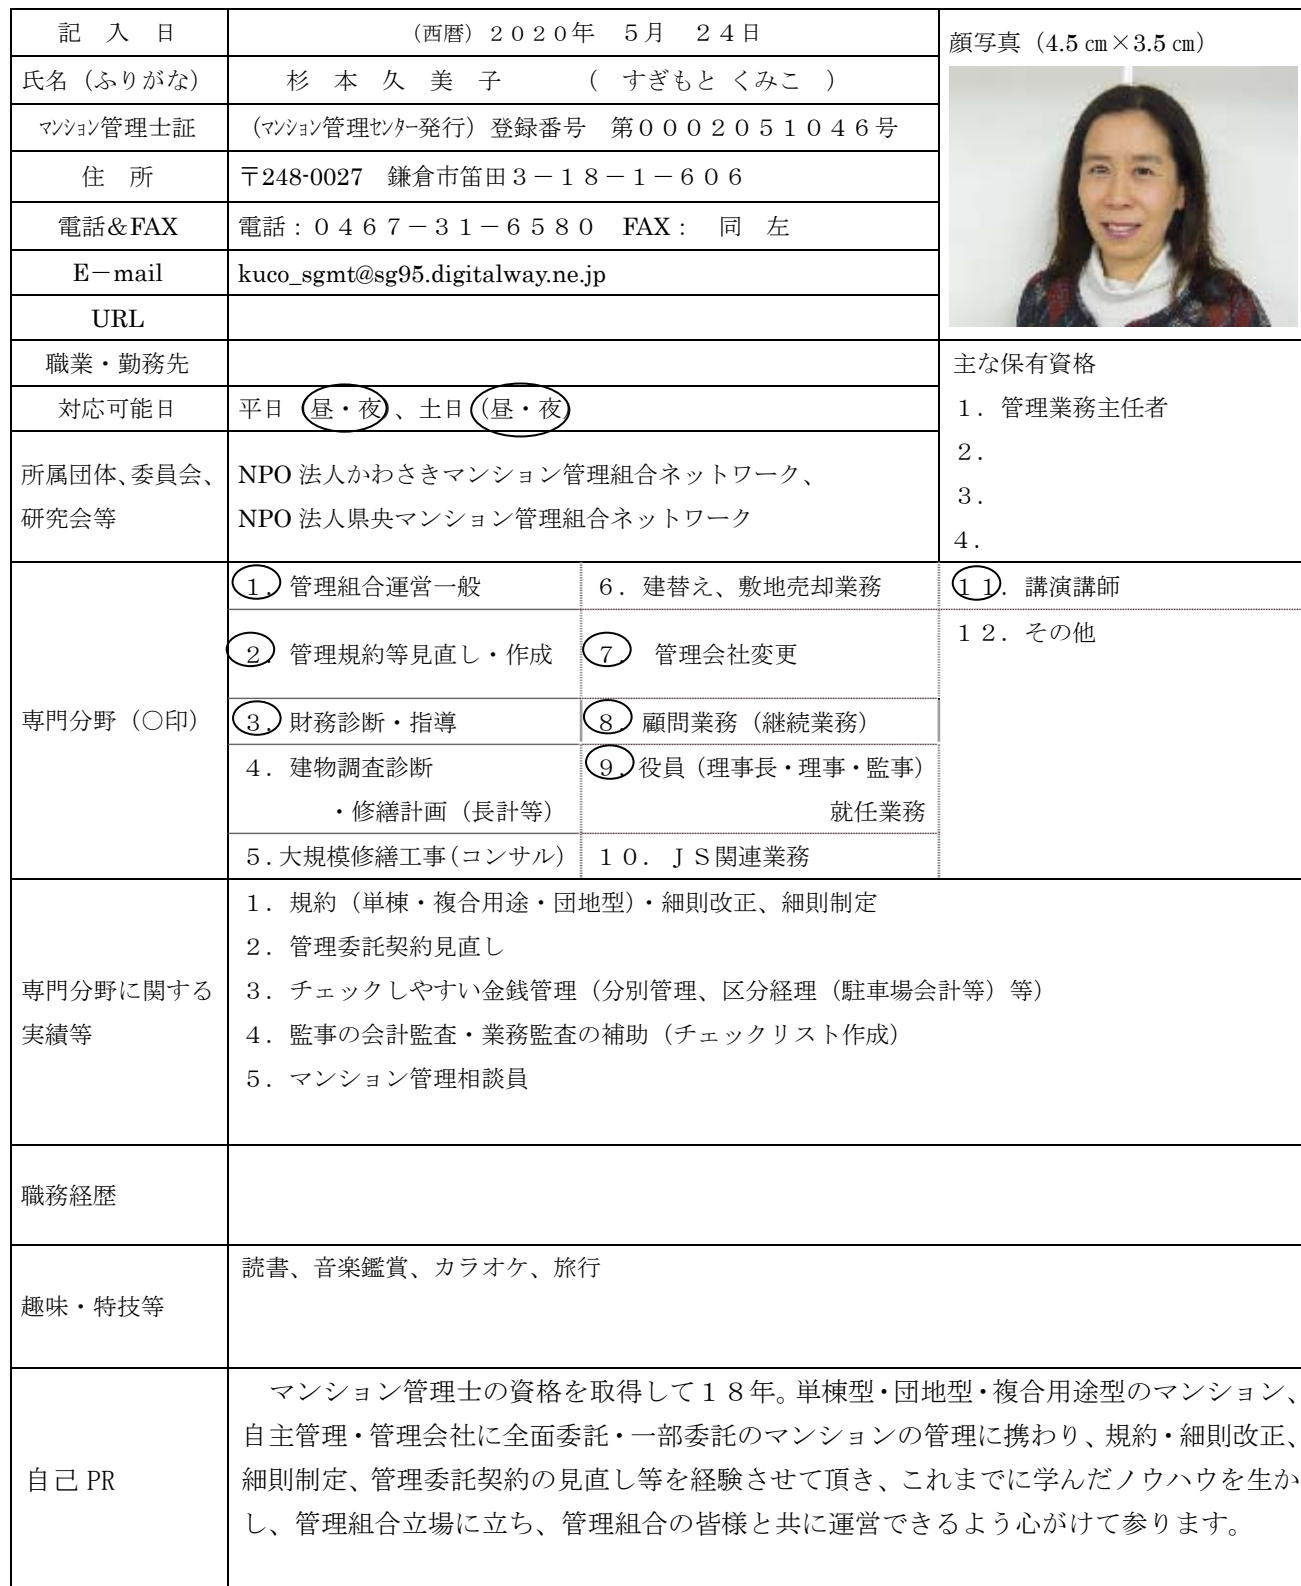 記 入 日 (西暦) 2020年 5月 24日
顔写真(4.5㎝×3.5㎝)
氏名(ふりがな) 杉 本 久 美 子 ( すぎもと くみこ )
マンション管理士証 (マンション管理センター発行) 登録番号 第0002051046号
住 所 〒248-0027 鎌倉市笛田3-18-1-606
電話&FAX 電話:0467-31-6580 FAX: 同 左
E-mail kuco_sgmt@sg95.digitalway.ne.jp
URL
職業・勤務先
対応可能日 平日 (昼・夜)、土日(昼・夜)
主な保有資格
1.管理業務主任者
2.
3.
4.
所属団体、委員会、
研究会等
NPO法人かわさきマンション管理組合ネットワーク、
NPO法人県央マンション管理組合ネットワーク
専門分野(○印)
1.管理組合運営一般
6.建替え、敷地売却業務
11.講演講師
2.管理規約等見直し・作成
7. 管理会社変更
12.その他
3.財務診断・指導
8.顧問業務(継続業務)
4.建物調査診断
・修繕計画(長計等)
9.役員(理事長・理事・監事)
就任業務
5.大規模修繕工事(コンサル)
10.JS関連業務
専門分野に関する
実績等
1.規約(単棟・複合用途・団地型)・細則改正、細則制定
2.管理委託契約見直し
3.チェックしやすい金銭管理(分別管理、区分経理(駐車場会計等)等)
4.監事の会計監査・業務監査の補助(チェックリスト作成)
5.マンション管理相談員
職務経歴
趣味・特技等
読書、音楽鑑賞、カラオケ、旅行
自己PR
マンション管理士の資格を取得して18年。単棟型・団地型・複合用途型のマンション、
自主管理・管理会社に全面委託・一部委託のマンションの管理に携わり、規約・細則改正、
細則制定、管理委託契約の見直し等を経験させて頂き、これまでに学んだノウハウを生か
し、管理組合立場に立ち、管理組合の皆様と共に運営できるよう心がけて参ります。